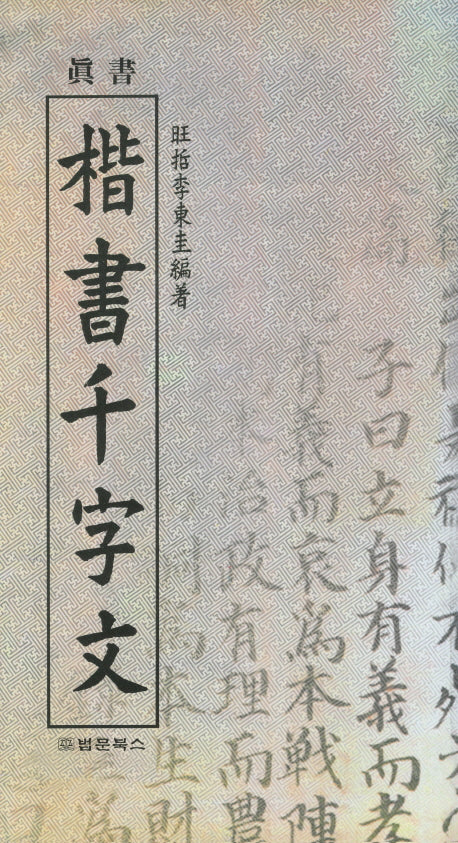 眞書
楷書千字文
李東圭編著
법문북스
子曰立身有義而孝
有義而哀爲本戰陣
治政有理而農
爲本生財
爲